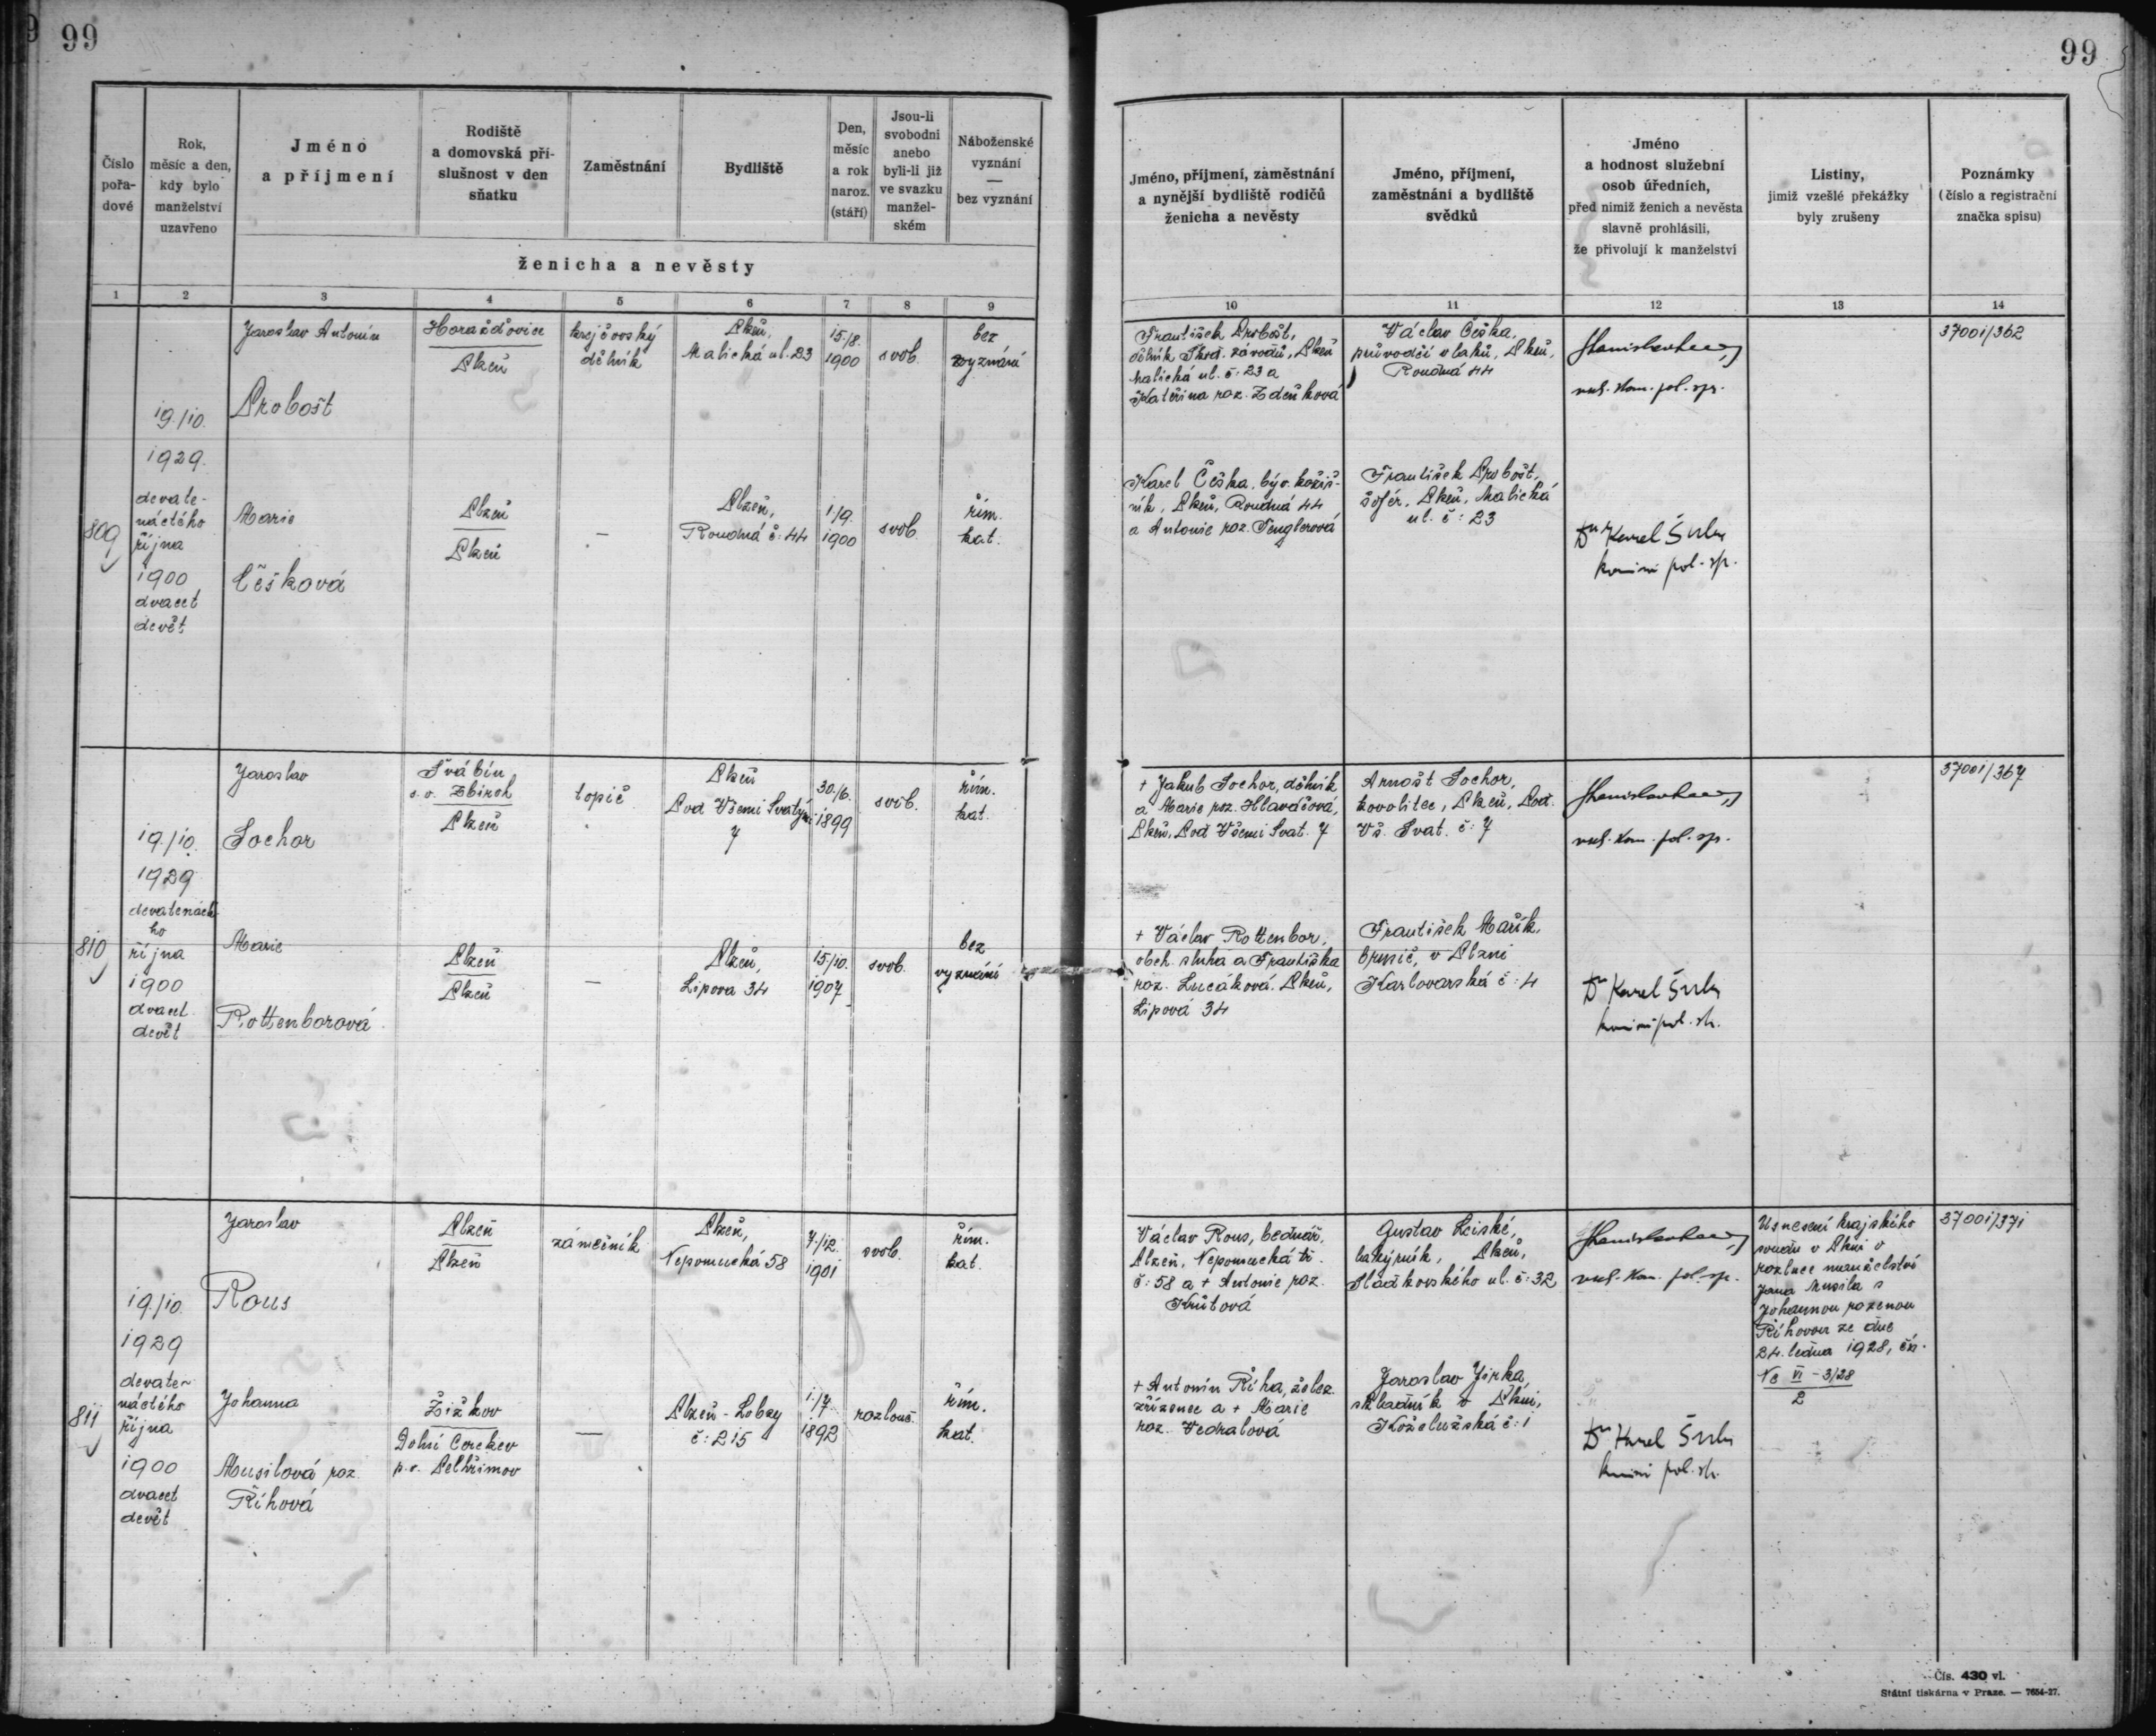 99
99
Číslo
pořa-
dové
Rok,
měsíc a den,
kdy bylo
manželství
uzavřeno
Jméno
a příjmení
Rodiště
a domovská pří-
slušnost v den
sňatku
Zaměstnání
Bydliště
Den,
měsíc
a rok
naroz.
(stáří)
Jsou-li
svobodni
anebo
byli-li již
ve svazku
manžel-
ském
Náboženské
vyznání
—
bez vyznání
ženicha a nevěsty
Jméno, příjmení, zaměstnání
a nynější bydliště rodičů
ženicha a nevěsty
Jméno, příjmení,
zaměstnání a bydliště
svědků
Jméno
a hodnost služební
osob úředních,
před nimiž ženich a nevěsta
slavně prohlásili,
že přivolují k manželství
Listiny,
jimiž vzešlé překážky
byly zrušeny
Poznámky
(číslo a registrační
značka spisu)
1 2 3 4 5 6 7 8 9 10 11 12 13 14
809
19./10.
1929.
devate-
náctého
října
1900
dvacet
devět
Jaroslav Antonín
Probošt
Horažďovice
Plzeň
krejčovský
dělník
Plzeň,
Malická ul. 23
15./8.
1900
svob.
bez
vyznání
František Probošt,
dělník Škod. závodů, Plzeň
Malická ul. č: 23 a
Kateřina roz. Zdeňková
Václav Češka,
průvodčí vlaků, Plzeň,
Roudná 44
pol. spr.
37001/362
Marie
Češková
Plzeň
Plzeň
—
Plzeň,
Roudná č: 44
1./9.
1900
svob.
řím.
kat.
Karel Češka, býv. košiš-
ník, Plzeň, Roudná 44
a Antonie roz. Fenglerová
František Probošt,
šofér, Plzeň, Malická
ul. č: 23
Dr Karel Šulc
pol. sp.
810
19./10.
1929
devatenácté
ho
října
1900
dvacet
devět
Jaroslav
Sochor
Švábín
s. o. Zbiroh
Plzeň
topič
Plzeň
Pod Všemi Svatými
7
30./6.
1899
svob.
řím.
kat.
+ Jakub Sochor, dělník
a Marie roz. Hlaváčová,
Plzeň, Pod Všemi Svat. 7
Arnošt Sochor,
kovolitec, Plzeň, Pod.
Vš. Svat. č: 7
pol. sp.
37001/367
Marie
Rottenborová
Plzeň
Plzeň
—
Plzeň,
Lipova 34
15/10.
1907
svob.
bez
vyznání
+ Václav Rottenbor,
obch. sluha a Františka
roz. Lucáková. Plzeň,
Lipová 34
František Mařík,
brusič, v Plzni
Karlovarská č: 4
Dr Karel Šulc
pol. sp.
811
19./10.
1929
devate-
náctého
října
1900
dvacet
devět
Jaroslav
Rous
Plzeň
Plzeň
zámečník
Plzeň,
Nepomucká 58
7./12.
1901
svob.
řím.
kat.
Václav Rous, bednář,
Plzeň, Nepomucká tř.
č: 58 a + Antonie roz.
Krůtová
Gustav Leiské,
lakýrník, Plzeň,
Sladkovského ul. č: 32
pol. sp.
Usnesení krajského
soudu v Plzni o
rozluce manželství
Jana Musila s
Johannou rozenou
Říhovou ze dne
24. ledna 1928, čís.
Nc VI - 3/28
2
37001/371
Johanna
Musilová roz.
Říhová
Žižkov
Dolní Cerekev
p. o. Pelhřimov
—
Plzeň - Lobzy
č: 215
1./7.
1892
rozlouč.
řím.
kat.
+ Antonín Říha, želez.
zřízenec a + Marie
roz. Vedralová
Jaroslav Jirka,
skladník v Plzni,
Koželužská č: 1
Dr Karel Šulc
pol. sp.
Čís. 430 vl.
Státní tiskárna v Praze. — 7654-27.